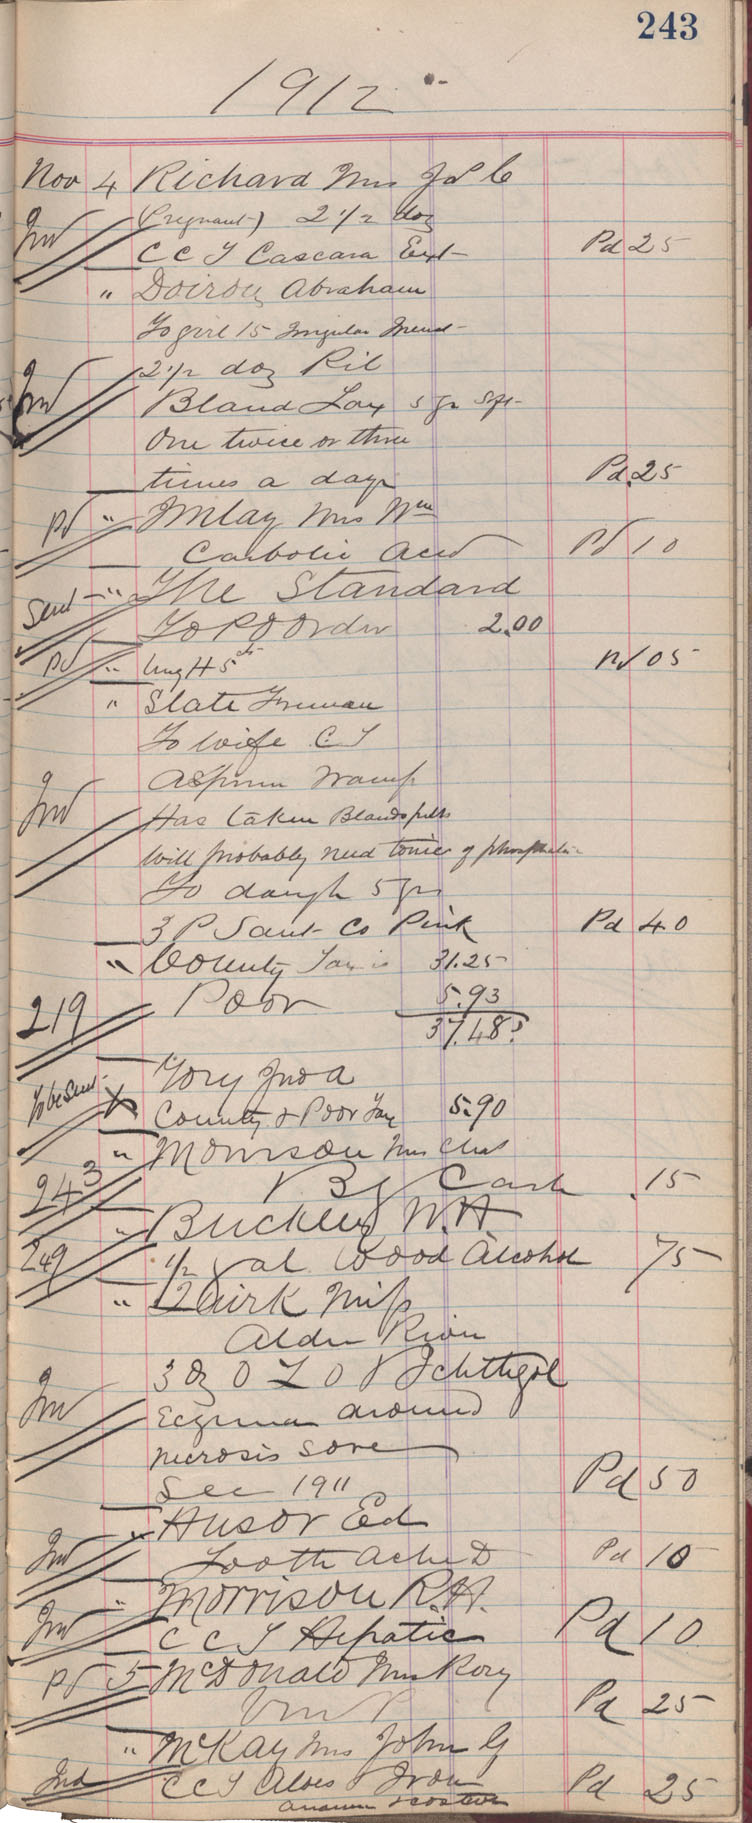 243
1912
Nov 4 Richard Mrs Jos C
Ind (Pregnant) 2 1/2 doz
C C T Cascara Ext Pd 25
" Doiron Abraham
To girl 15 Irregular Menst
Ind 2 1/2 doz Ril
Blaud Lax 5 gr
One twice or three
times a day Pd .25
Pd " Imlay Mrs Wm
Carbolic Acid Pd 10
Sent " The Standard
To P O Order 2.00
Pd " Ung H 5cts Pd 05
" Slate Freeman
To Wife C T
Ind Aspirin
Has taken Blauds pills
Will probably need tonic of
To daugh 5 grs
3 P Sant Co Pink Pd 40
" County Tax is 31.25
219 Poor 5.93
37.18
To be Sent X Tory Jno A
County & Poor Tax 5.90
" Morrison Mrs Chas
243 By Cash .15
" Buckley W.H
249 1/2 gal Wood Alcohol 75
" Quirk Miss
Alder River
3 oz O Z O & Ichthyol
Ind Eczema around
necrosis sore
See 1911 Pd 50
" Husor Ed
Ind Tooth Ache D Pd 10
" Morrison R.H.
Ind C C T Hepatic Pd 10
Pd 5 McDonald Mrs Rory
Pd 25
" McKay Mrs John G
Ind C C T Aloes & Iron Pd 25
anaemia & costive